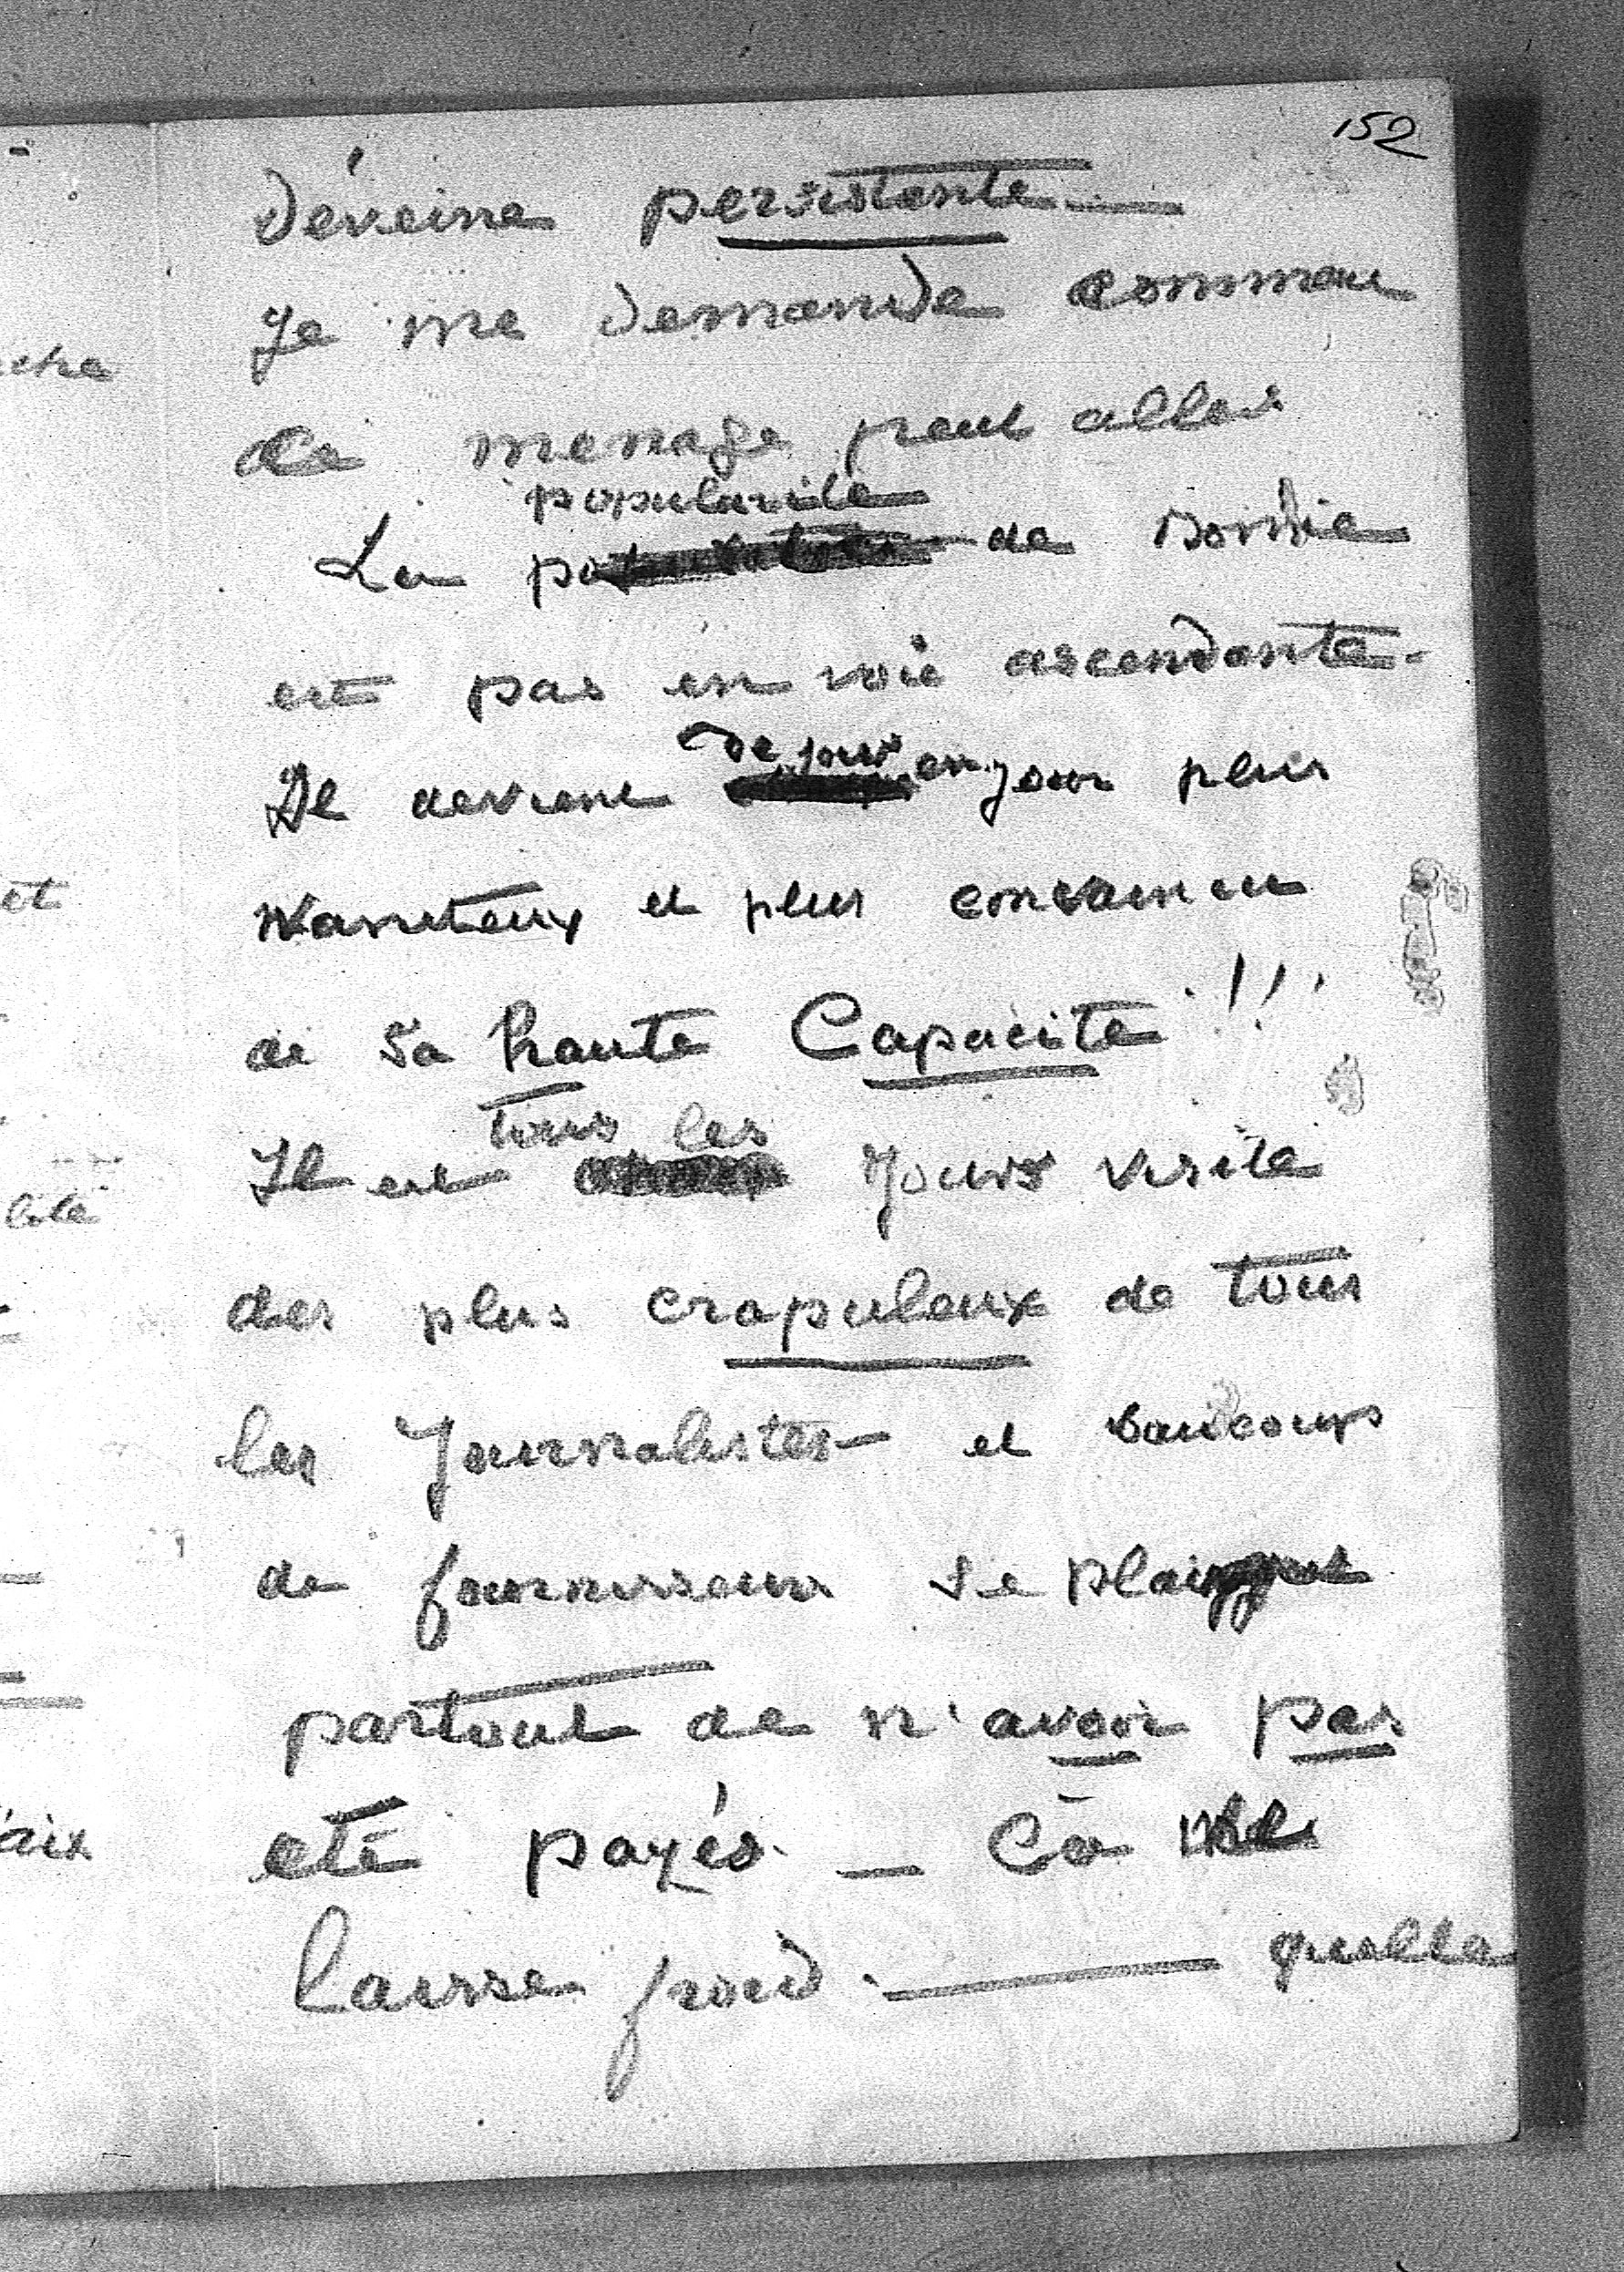 152
Déveine persistante —
Je me demande commen
ce menage peut aller
popularite
La de Bornier
est pas en voie ascendante -
Il devient de jour en jour plus
vaniteux et plus convaincu
de sa haute Capacité !!!
tous les
Il est jours visite
des plus crapuleux de tous
les Journalistes — et baucoup
de fournisseurs se plaignent
partout de n'avoir pas
eté payés. — Ca me
laisse froid. — quelle